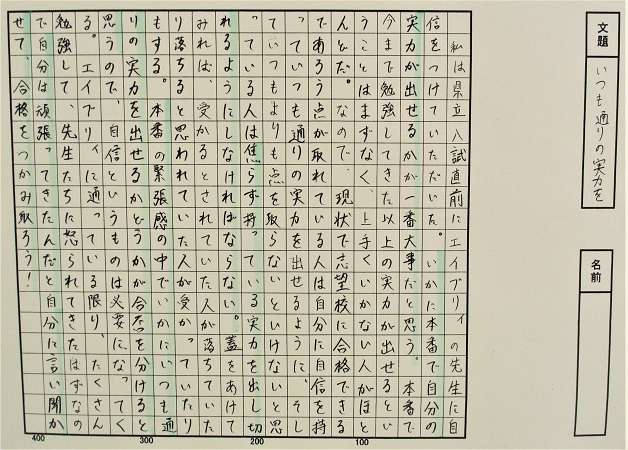 文題
いつも通りの実力を
名前
私は県立入試直前にエイブリィの先生に自
信をつけていただいた。いかに本番で自分の
実力が出せるかが一番大事だと思う。本番で
今まで勉強してきた以上の実力が出せるとい
うことはまずなく、上手くいかない人がほと
んどだ。なので、現状で志望校に合格できる
であろう点が取れている人は自分に自信を持
っていつも通りの実力を出せるように、そし
ていつもよりも点を取らないといけないと思
っている人は焦らず持っている実力を出し切
れるようにしなければならない。蓋をあけて
みれば、受かるとされていた人が落ちていた
り落ちると思われていた人が受かっていたり
もする。本番の緊張感の中でいかにいつも通
りの実力を出せるかどうかが合否を分けると
思うので、自信というものが必要になってく
る。エイブリィに通っている限り、たくさん
勉強して、先生たちに怒られてきたはずなの
で自分は頑張ってきたんだと自分に言い聞か
せて、合格をつかみ取ろう！
100
200
300
400